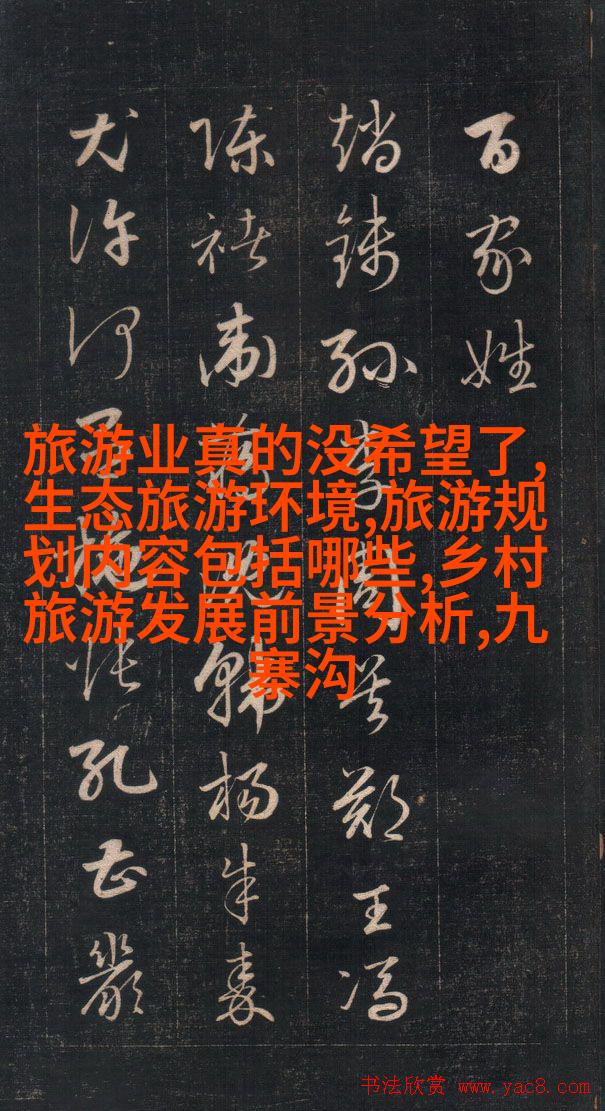 百家姓
趙錢孫李周吳鄭王馮
陳褚衛蔣沈韓楊朱秦
尤許何呂施張孔曹嚴
旅游业真的没希望了,
生态旅游环境,旅游规
划内容包括哪些,乡村
旅游发展前景分析,九
寨沟
书法欣赏 www.yac8.com